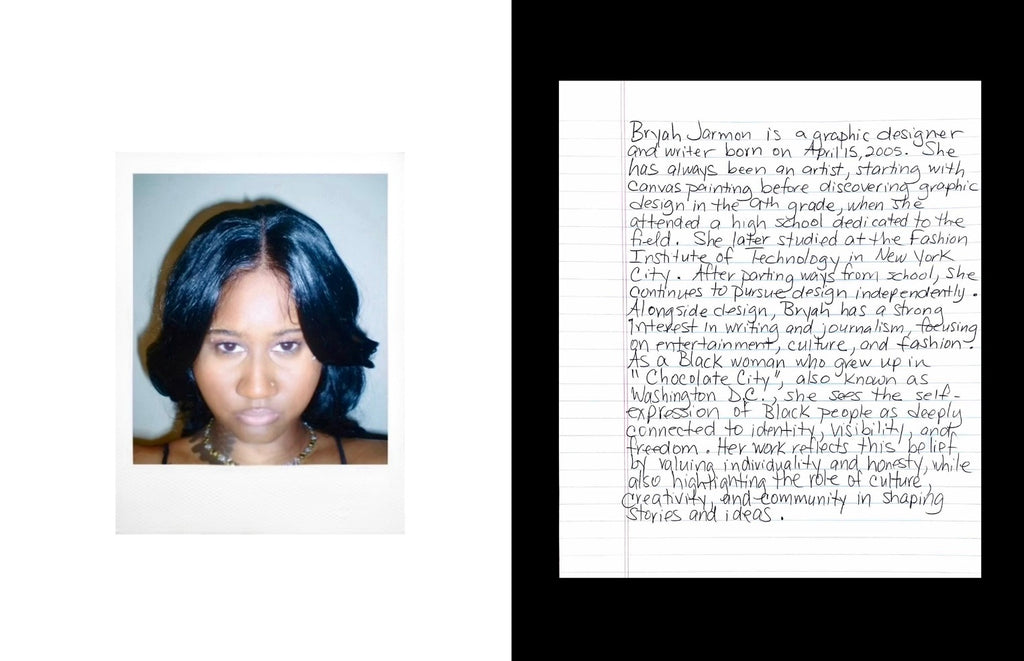 Bryah Jarmon is a graphic designer
and writer born on April 15, 2005. She
has always been an artist, starting with
canvas painting before discovering graphic
design in the 9th grade, when she
attended a high school dedicated to the
field. She later studied at the Fashion
Institute of Technology in New York
City. After parting ways from school, she
continues to pursue design independently.
Alongside design, Bryah has a strong
interest in writing and journalism, focusing
on entertainment, culture, and fashion.
As a Black woman who grew up in
"Chocolate City", also known as
Washington D.C., she sees the self-
expression of Black people as deeply
connected to identity, visibility, and
freedom. Her work reflects this belief
by valuing individuality and honesty, while
also highlighting the role of culture,
creativity, and community in shaping
stories and ideas.